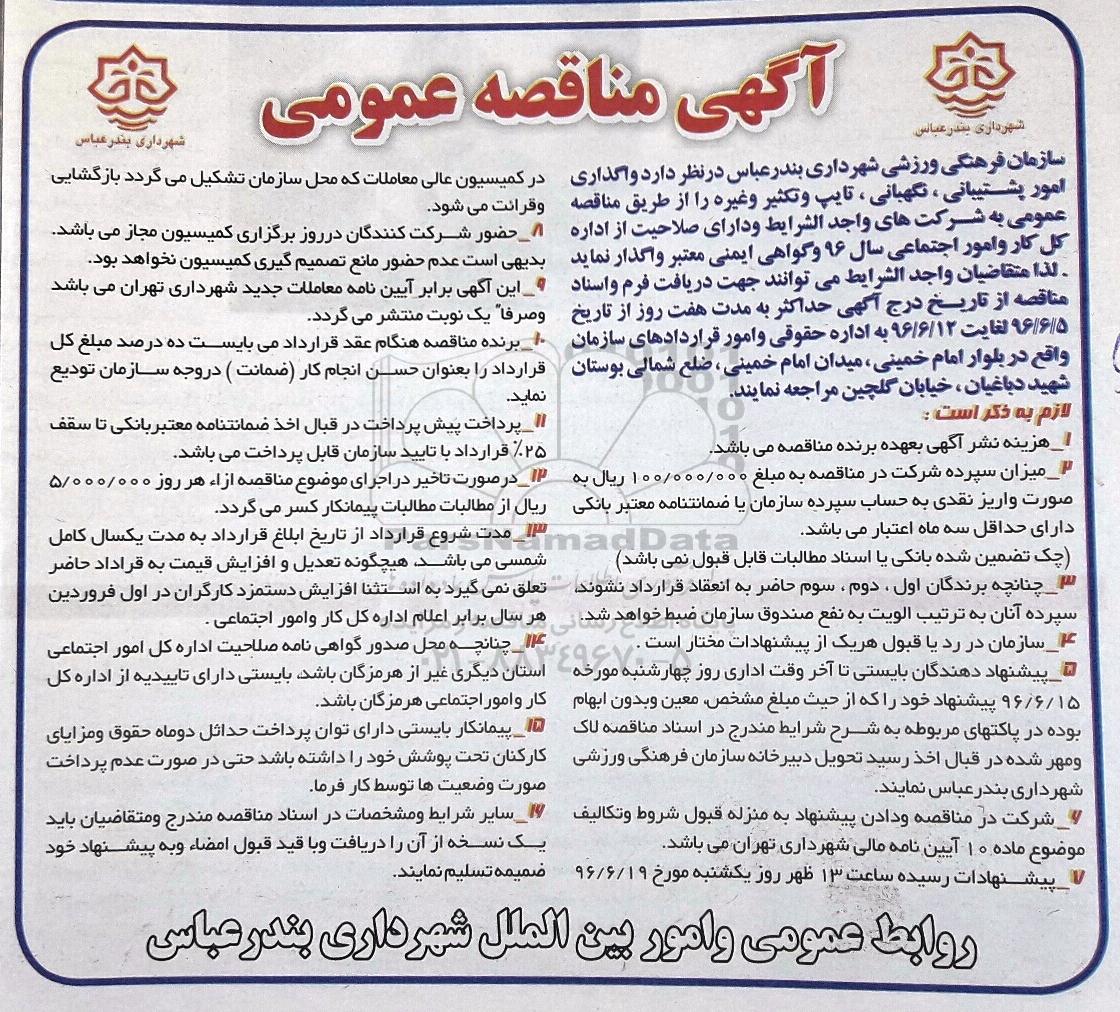 شهرداری بندرعباس
آگهی مناقصه عمومی
شهرداری بندرعباس
سازمان فرهنگی ورزشی شهرداری بندرعباس درنظر دارد واگذاری
امور پشتیبانی ، نگهبانی ، تایپ وتکثیر وغیره را از طریق مناقصه
عمومی به شرکت های واجد الشرایط ودارای صلاحیت از اداره
کل کار وامور اجتماعی سال ۹۶ وگواهی ایمنی معتبر واگذار نماید
. لذا متقاضیان واجد الشرایط می توانند جهت دریافت فرم واسناد
مناقصه از تاریخ درج آگهی حداکثر به مدت هفت روز از تاریخ
۹۶/۶/۵ لغایت ۹۶/۶/۱۲ به اداره حقوقی وامور قراردادهای سازمان
واقع در بلوار امام خمینی ، میدان امام خمینی ، ضلع شمالی بوستان
شهید دباغیان ، خیابان گلچین مراجعه نمایند.
لازم به ذکر است :
۱_هزینه نشر آگهی بعهده برنده مناقصه می باشد.
۲_ میزان سپرده شرکت در مناقصه به مبلغ ۱۰۰/۰۰۰/۰۰۰ ریال به
صورت واریز نقدی به حساب سپرده سازمان یا ضمانتنامه معتبر بانکی
دارای حداقل سه ماه اعتبار می باشد.
(چک تضمین شده بانکی یا اسناد مطالبات قابل قبول نمی باشد)
۳_چنانچه برندگان اول ، دوم ، سوم حاضر به انعقاد قرارداد نشوند،
سپرده آنان به ترتیب الویت به نفع صندوق سازمان ضبط خواهد شد.
۴_سازمان در رد یا قبول هریک از پیشنهادات مختار است .
۵_پیشنهاد دهندگان بایستی تا آخر وقت اداری روز چهارشنبه مورخه
۹۶/۶/۱۵ پیشنهاد خود را که از حیث مبلغ مشخص، معین وبدون ابهام
بوده در پاکتهای مربوطه به شرح شرایط مندرج در اسناد مناقصه لاک
ومهر شده در قبال اخذ رسید تحویل دبیرخانه سازمان فرهنگی ورزشی
شهرداری بندرعباس نمایند.
۶_شرکت در مناقصه ودادن پیشنهاد به منزله قبول شروط وتکالیف
موضوع ماده ۱۰ آیین نامه مالی شهرداری تهران می باشد.
۷_پیشنهادات رسیده ساعت ۱۳ ظهر روز یکشنبه مورخ ۹۶/۶/۱۹
در کمیسیون عالی معاملات که محل سازمان تشکیل می گردد بازگشایی
وقرائت می شود.
۸_حضور شرکت کنندگان درروز برگزاری کمیسیون مجاز می باشد.
بدیهی است عدم حضور مانع تصمیم گیری کمیسیون نخواهد بود.
۹_ این آگهی برابر آیین نامه معاملات جدید شهرداری تهران می باشد
وصرفا" یک نوبت منتشر می گردد.
۱۰_برنده مناقصه هنگام عقد قرارداد می بایست ده درصد مبلغ کل
قرارداد را بعنوان حسن انجام کار (ضمانت ) دروجه سازمان تودیع
نماید.
۱۱_پرداخت پیش پرداخت در قبال اخذ ضمانتنامه معتبربانکی تا سقف
۲۵٪ قرارداد با تایید سازمان قابل پرداخت می باشد.
۱۲_درصورت تاخیر دراجرای موضوع مناقصه ازاء هر روز ۵/۰۰۰/۰۰۰
ریال از مطالبات مطالبات پیمانکار کسر می گردد.
۱۳_ مدت شروع قرارداد از تاریخ ابلاغ قرارداد به مدت یکسال کامل
شمسی می باشد، هیچگونه تعدیل و افزایش قیمت به قراداد حاضر
تعلق نمی گیرد به استثنا افزایش دستمزد کارگران در اول فروردین
هر سال برابر اعلام اداره کل کار وامور اجتماعی .
۱۴_ چنانچه محل صدور گواهی نامه صلاحیت اداره کل امور اجتماعی
استان دیگری غیر از هرمزگان باشد، بایستی دارای تاییدیه از اداره کل
کار وامور اجتماعی هرمزگان باشد.
۱۵_پیمانکار بایستی دارای توان پرداخت حداثل دوماه حقوق ومزایای
کارکنان تحت پوشش خود را داشته باشد حتی در صورت عدم پرداخت
صورت وضعیت ها توسط کار فرما.
۱۶_سایر شرایط ومشخصات در اسناد مناقصه مندرج ومتقاضیان باید
یک نسخه از آن را دریافت وبا قید قبول امضاء وبه پیشنهاد خود
ضمیمه تسلیم نمایند.
روابط عمومی وامور بین الملل شهرداری بندرعباس
ParsNamadData
۰۲۱-۸۸۳۴۹۶۷۰-۵